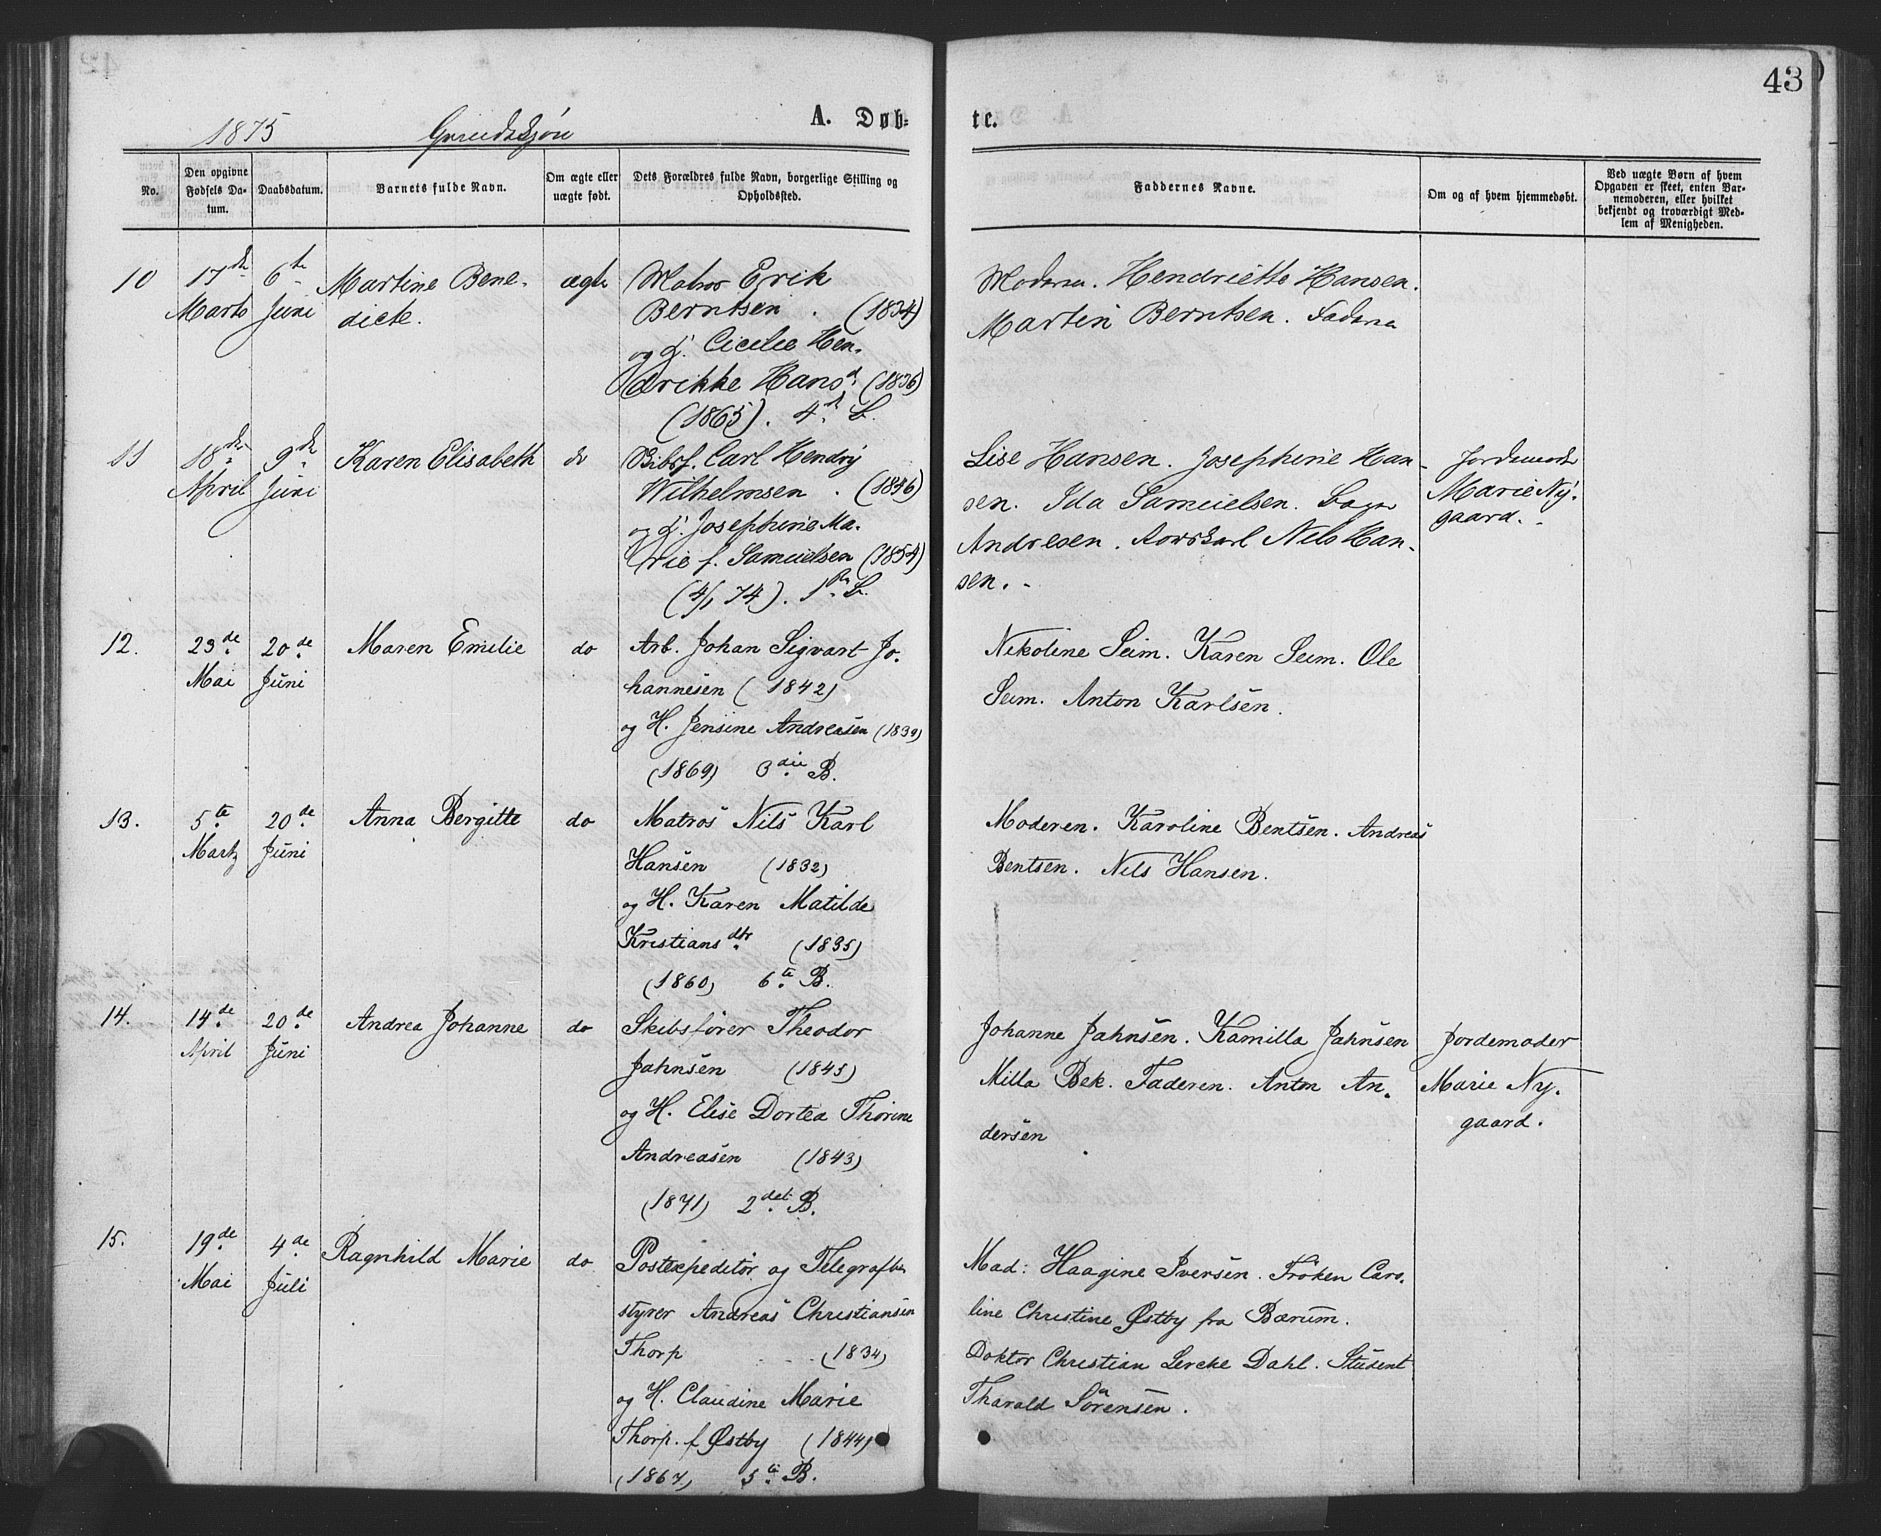 43
1875 Grundesjøn
A. Døb-
te.
No.
Den opgivne Fødsels Da-tum.
Daabsdatum.
Barnets fulde Navn.
Om ægte eller uægte født.
Dets Forældres fulde Navn, borgerlige Stilling og Opholdssted.
Faddernes Navne.
Om og af hvem hjemmedøbt.
Ved uægte Børn af hvem Opgaven er skeet, enten Bar-nemoderen, eller hvilket bekjendt og troværdigt Med-lem af Menigheden.
10 17de 6te Martine Bene- ægte Matros Erik
Marts Juni dicte. Berntsen . (1834)
og H. Cicelie Hen-
drikke Hansd. (1836)
(1865). 4d B.
Moderen. Hendriette Hansen.
Martin Berntsen. Faderen
11 18de 9de Karen Elisabeth do Skibsf. Carl Hendry
April Juni Wilhelmsen . (1846)
og H. Josephine Ma-
rie f. Samuelsen (1854)
(4/1 74). 1ste B.
Lise Hansen. Josephine Han-
sen. Ida Samuelsen.
Andresen. Nils Han-
sen. -
Jordemoder
Marie Ny-
gaard. -
12. 23de 20de Maren Emilie do Arb. Johan Sigvart Jo-
Mai Juni hannesen (1842)
og H. Jensine Andreasen (1839)
(1869) 3die B.
Nikoline Seim. Karen Seim. Ole
Seim. Anton Karlsen.
13. 5te 20de Anna Bergitte do Matros Nils Karl
Martz Juni Hansen (1832)
og H. Karen Matilde
Kristiansdtr. (1835)
(1860) 6te B.
Moderen. Karoline Bentsen. Andreas
Bentsen. Nils Hansen.
14. 14de 20de Andrea Johanne do Skibsfører Theodor
April Juni Jahnsen (1845)
og H. Elise Dortea Thorine
Andreasen (1843)
(1871) 2det B.
Johanne Jahnsen. Kamilla Jahnsen
Milla Bek. Faderen. Anton An-
dersen
Jordemoder
Marie Ny-
gaard.
15. 19de 4de Ragnhild Marie do Postexpeditør og Telegrafbe-
Mai Juli styrer Andreas Christiansen
Thorp (1834)
og H. Claudine Marie
Thorp. f. Østby (1844)
(1867) 5te B.
Mad: Haagine Iversen. Frøken Caro-
line Christine Østby fra Bærum.
Doktor Christian Lercke Dahl. Student
Tharald Sørensen.